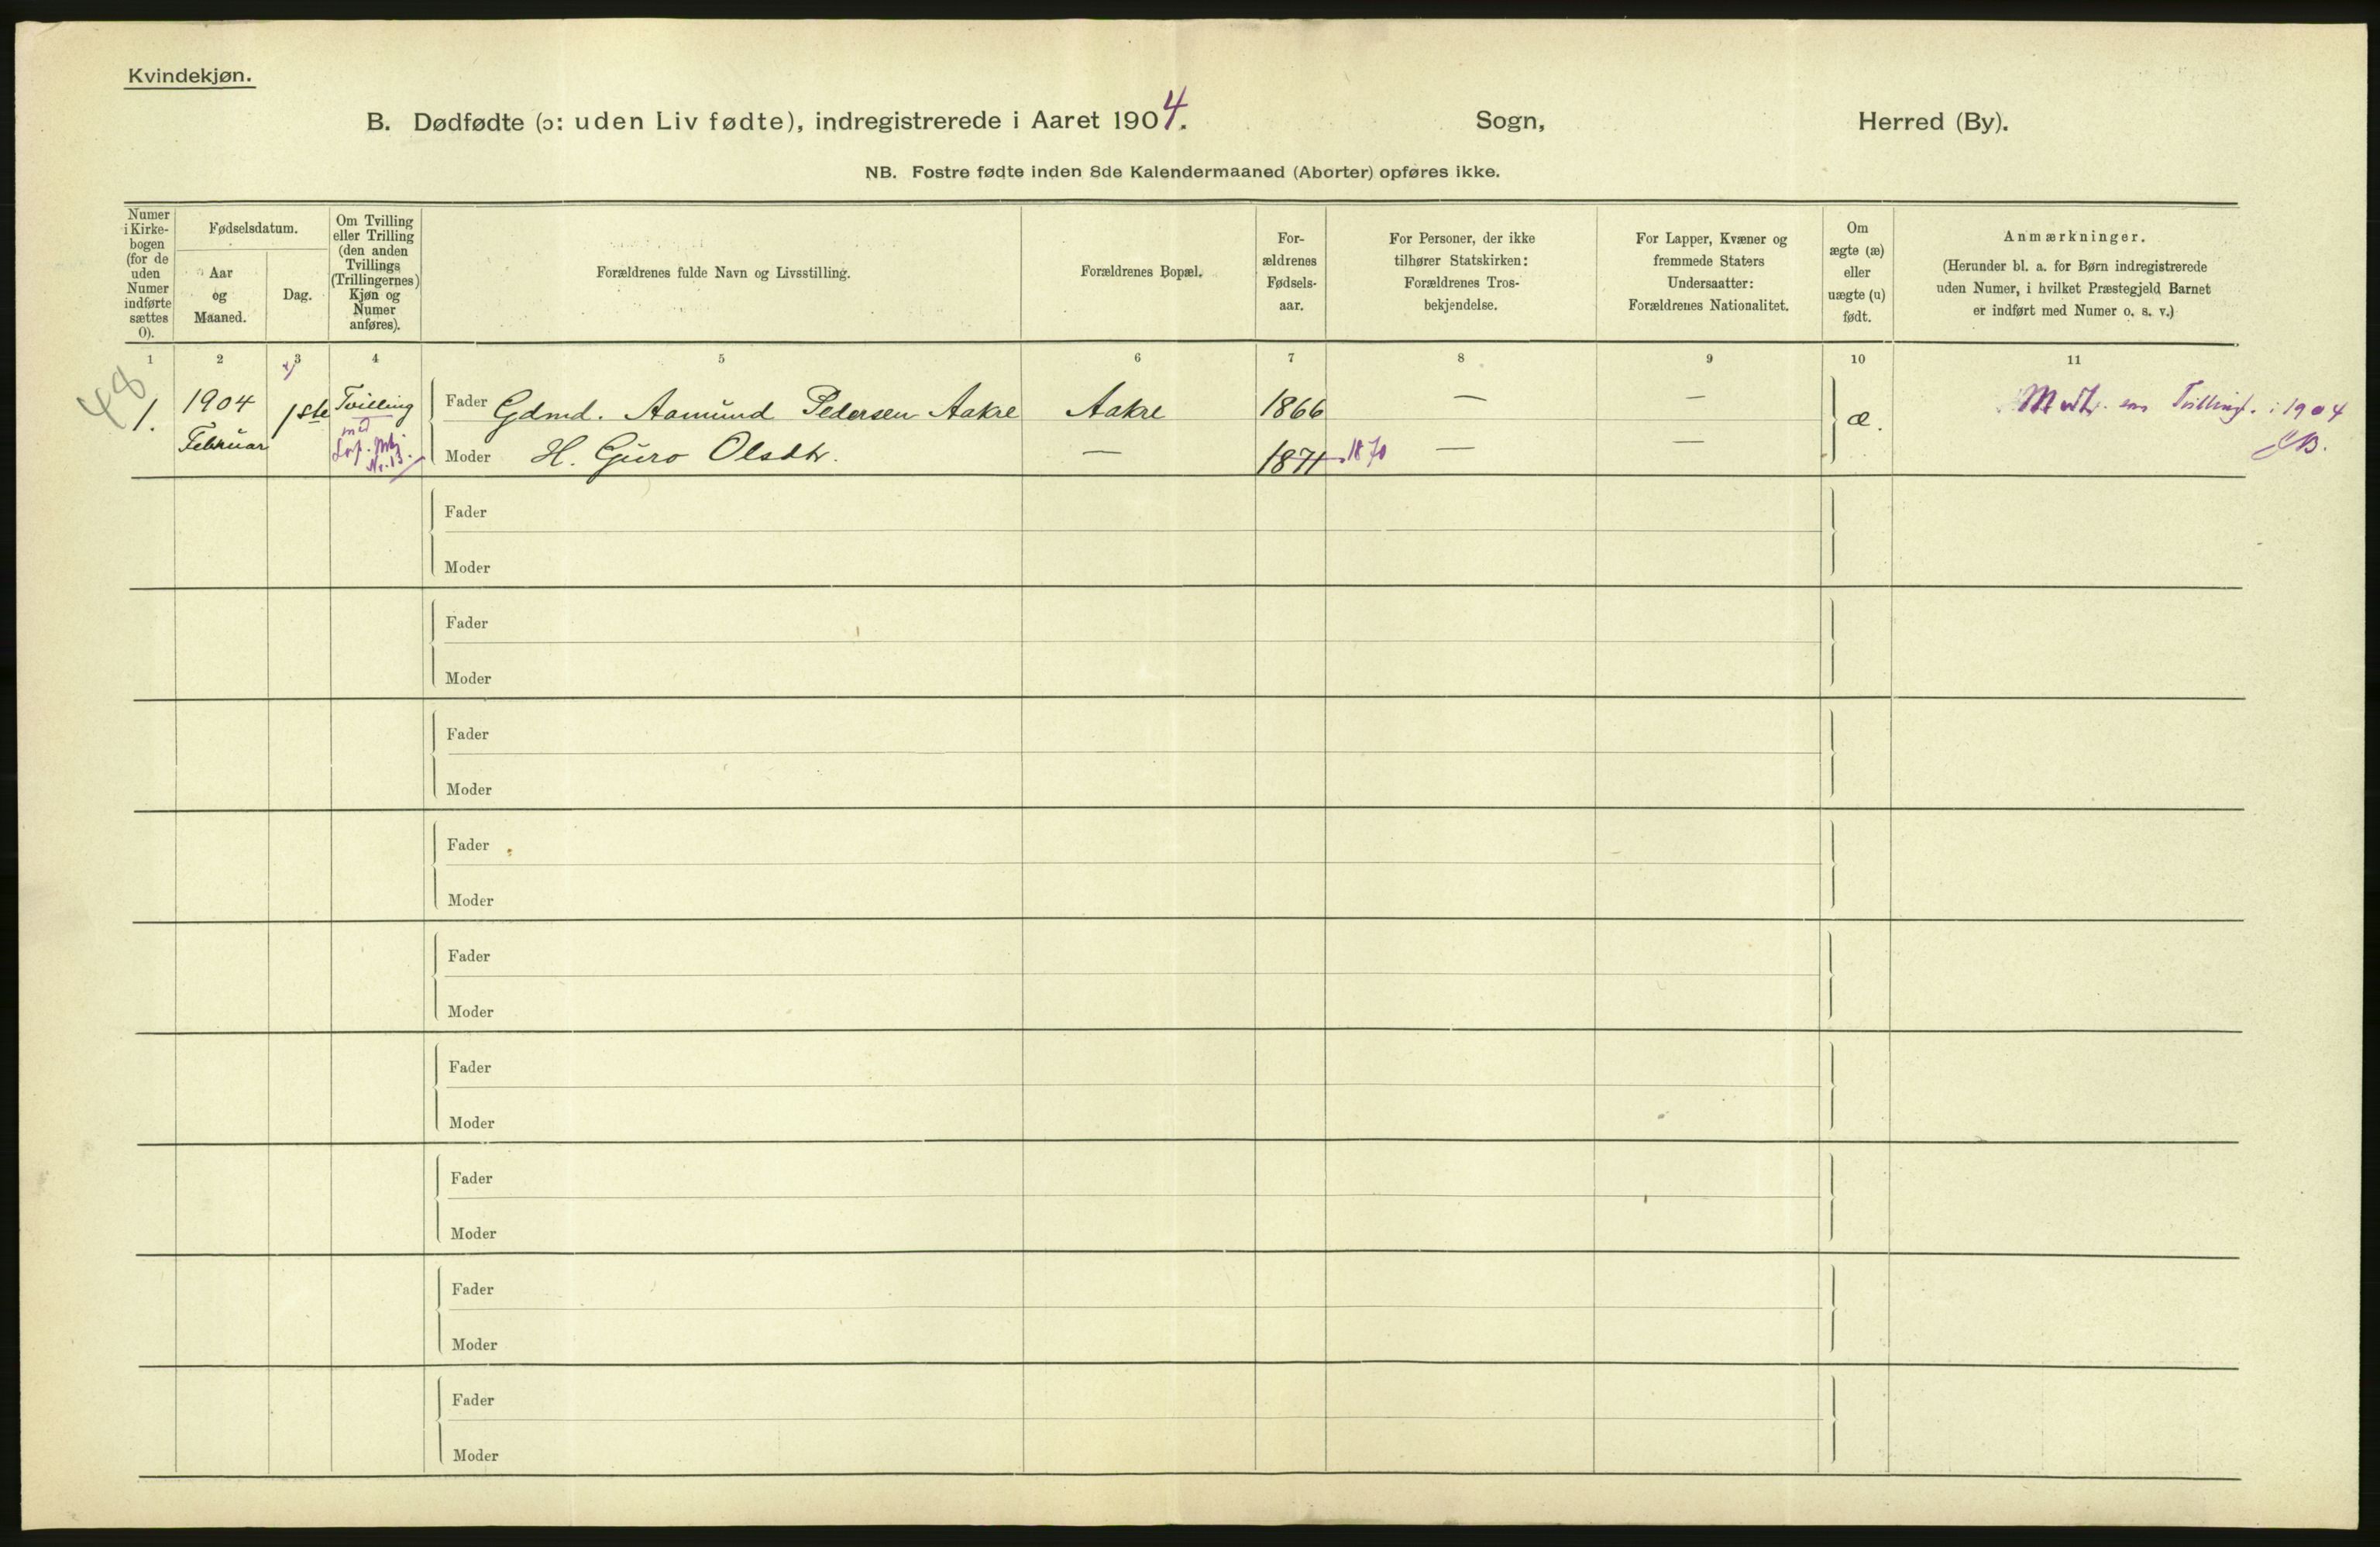 Kvindekjøn.
B. Dødfødte (ɔ: uden Liv fødte), indregistrerede i Aaret 1904. Sogn, Herred (By).
NB. Fostre fødte inden 8de Kalendermaaned (Aborter) opføres ikke.
Numer
i Kirke-
bogen
(for de
uden
Numer
indførte
sættes
0).
Fødselsdatum.
Aar
og
Maaned.
Dag.
Om Tvilling
eller Trilling
(den anden
Tvillings
(Trillingernes)
Kjøn og
Numer
anføres).
Forældrenes fulde Navn og Livsstilling.
Forældrenes Bopæl.
For-
ældrenes
Fødsels-
aar.
For Personer, der ikke
tilhører Statskirken:
Forældrenes Tros-
bekjendelse.
For Lapper, Kvæner og
fremmede Staters
Undersaatter:
Forældrenes Nationalitet.
Om
ægte (æ)
eller
uægte (u)
født.
Anmærkninger.
(Herunder bl. a. for Børn indregistrerede
uden Numer, i hvilket Præstegjeld Barnet
er indført med Numer o. s. v.)
1 2 3 4 5 6 7 8 9 10 11
48
1.
1904
Februar
1ste
Tvilling
med
Nr. 13.
Fader Gdmd. Aamund Pedersen Aakre Aakre 1866 — —
Moder H. Guro Olsdtr. — 1871 1870 — —
æ.
Tvilling. i 1904
Fader
Moder
Fader
Moder
Fader
Moder
Fader
Moder
Fader
Moder
Fader
Moder
Fader
Moder
Fader
Moder
Fader
Moder